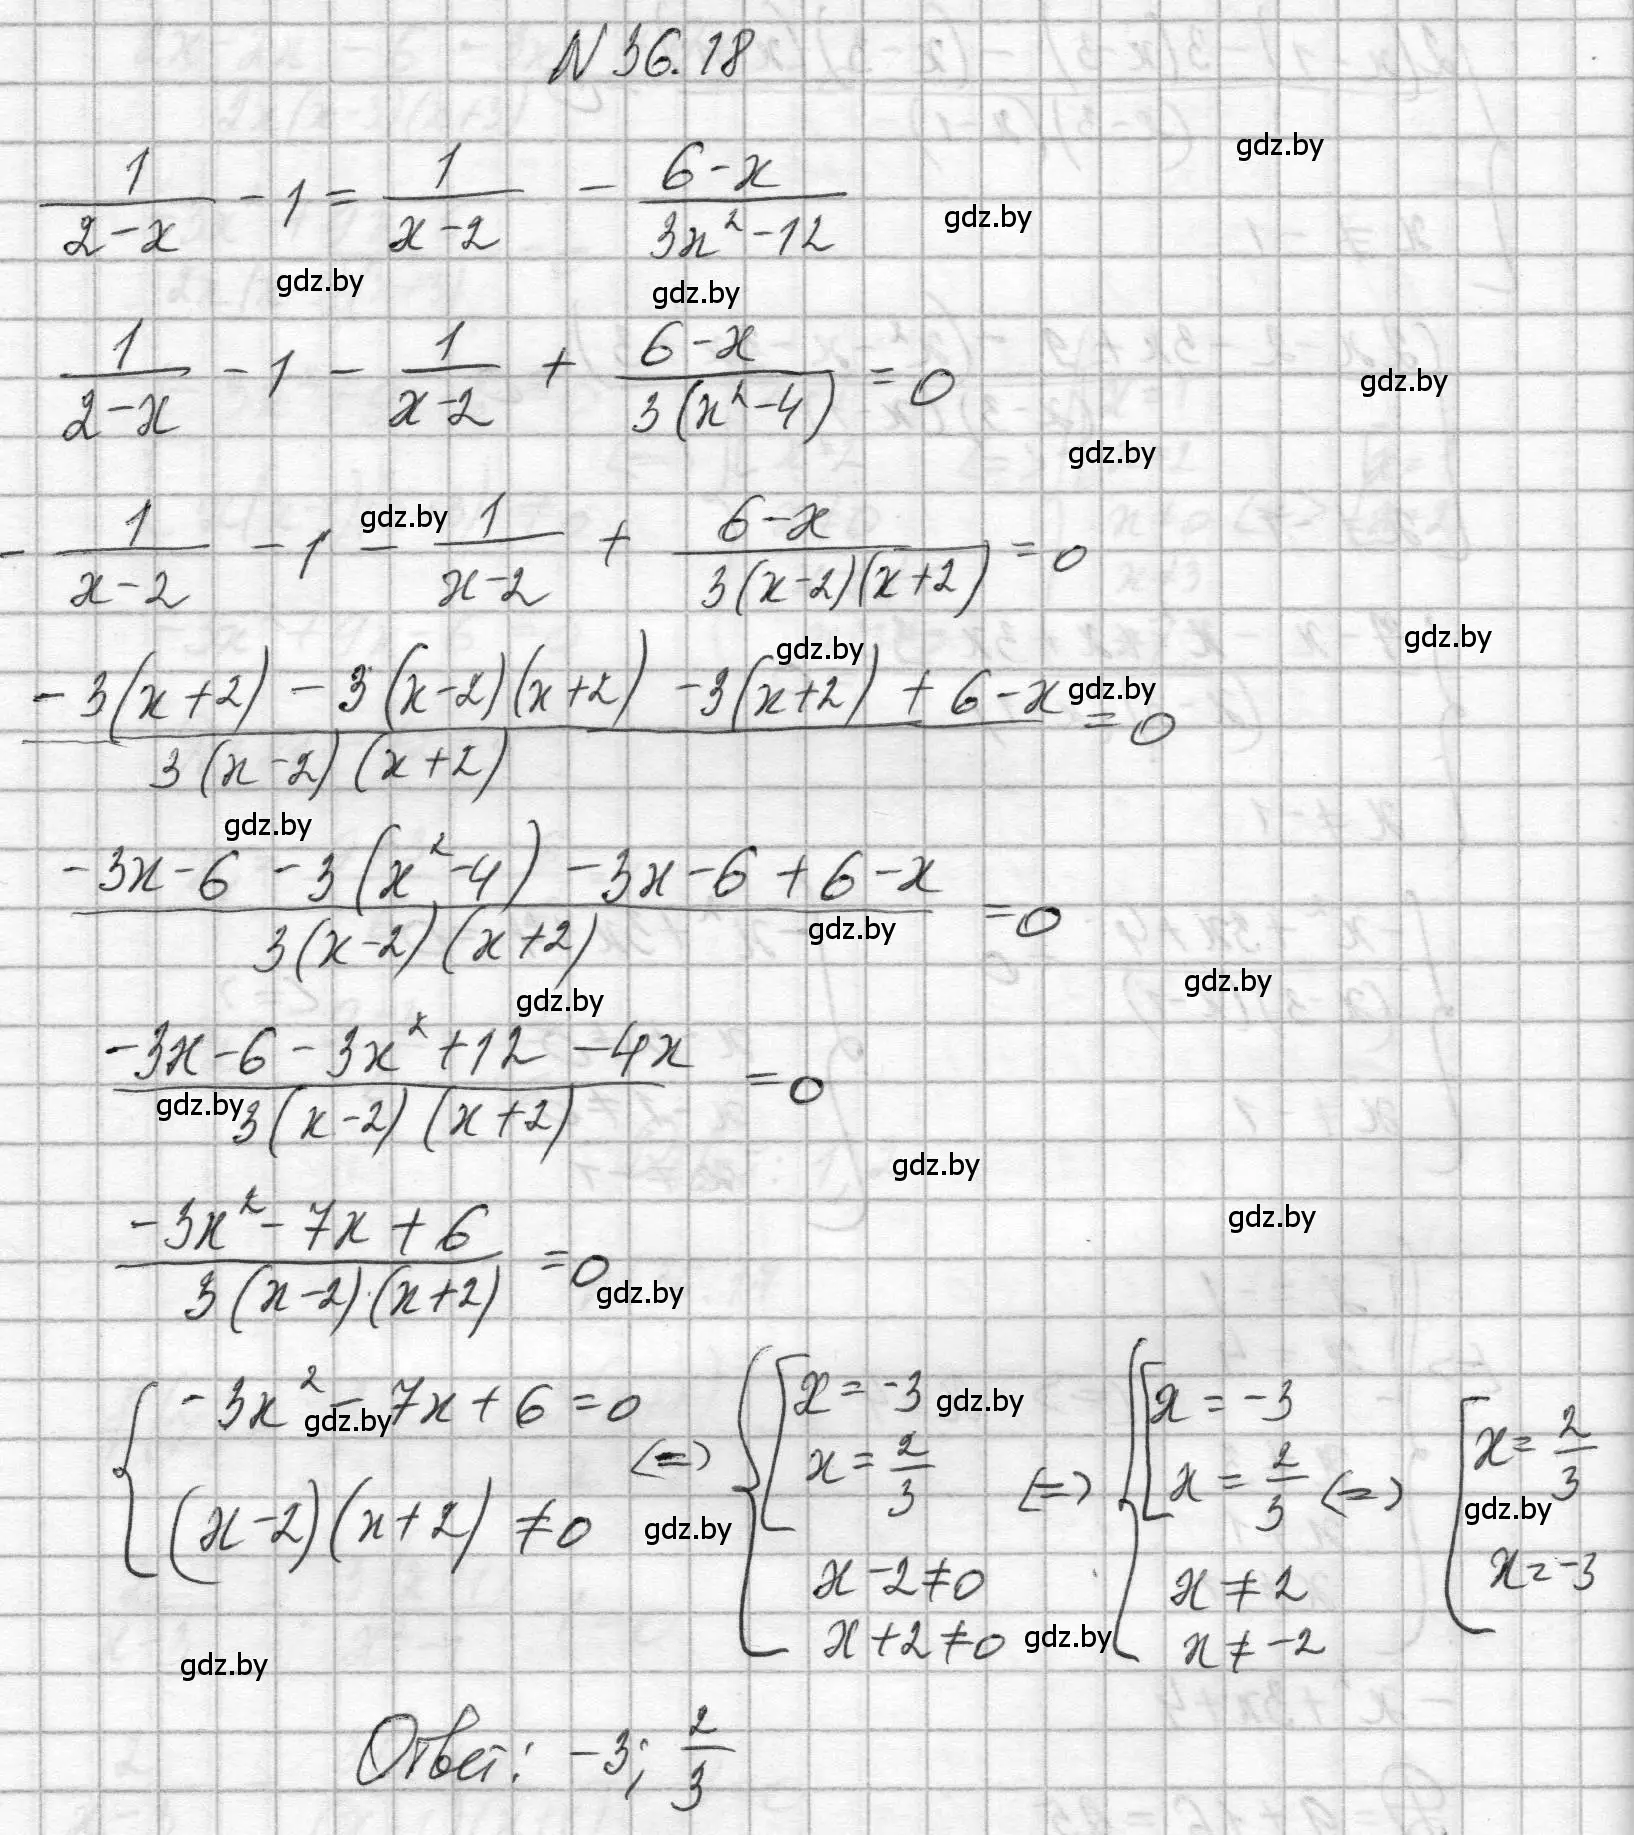 N 36.18
gdz.by
1/(2-x) - 1 = 1/(x-2) - (6-x)/(3x²-12)
gdz.by
gdz.by
gdz.by
1/(2-x) - 1 - 1/(x-2) + (6-x)/(3(x²-4)) = 0
gdz.by
gdz.by
-1/(x-2) - 1 - 1/(x-2) + (6-x)/(3(x-2)(x+2)) = 0
gdz.by
gdz.by
gdz.by
(-3(x+2) - 3(x-2)(x+2) - 3(x+2) + 6-x)/(3(x-2)(x+2)) = 0
gdz.by
gdz.by
(-3x-6 - 3(x²-4) - 3x-6 + 6-x)/(3(x-2)(x+2)) = 0
gdz.by
gdz.by
gdz.by
(-3x-6 - 3x² + 12 - 4x)/(3(x-2)(x+2)) = 0
gdz.by
gdz.by
(-3x² - 7x + 6)/(3(x-2)·(x+2)) = 0
gdz.by
gdz.by
{ -3x² - 7x + 6 = 0 (=) { [ x = -3 { [ x = -3 [ x = 2/3
gdz.by
gdz.by
(x-2)(x+2) ≠ 0 x = 2/3 (=) x = 2/3 (=) x = -3
gdz.by
gdz.by
x - 2 ≠ 0 x ≠ 2
x + 2 ≠ 0 x ≠ -2
gdz.by
gdz.by
Ответ: -3; 2/3